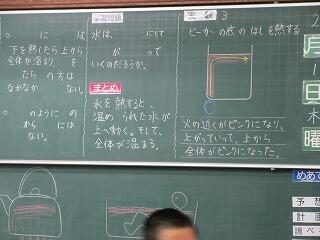 学習問題
水は、　にて
が　って
いくのだろうか。
まとめ
水を熱すると、
温められた水が
上へ動く。そして、
全体が温まる。
実験 3
ビーカーの底のはしを熱する
火の近くがピンクになり、
上がっていって、上から
全体がピンクになった。
に　は
下を熱したら上から
全体が温まり、を
たら　の方は
なかなか　ない。
のように　の
から　には
ない。
2
月
日
木
曜
めあて
予想
計画
調べ